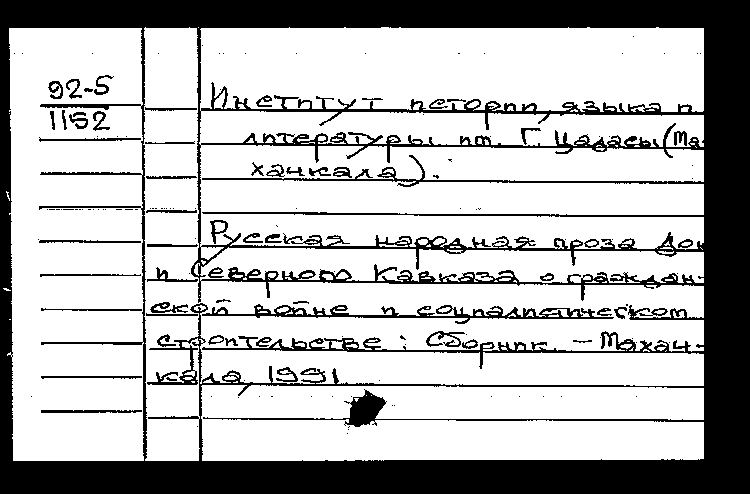 92-5
1152
Институт истории, языка и
литературы им. Г. Цадасы (Ма-
хачкала).
Русская народная проза Дон
и Северного Кавказа о граждан-
ской войне и социалистическом
строительстве: Сборник. - Махач-
кала, 1991